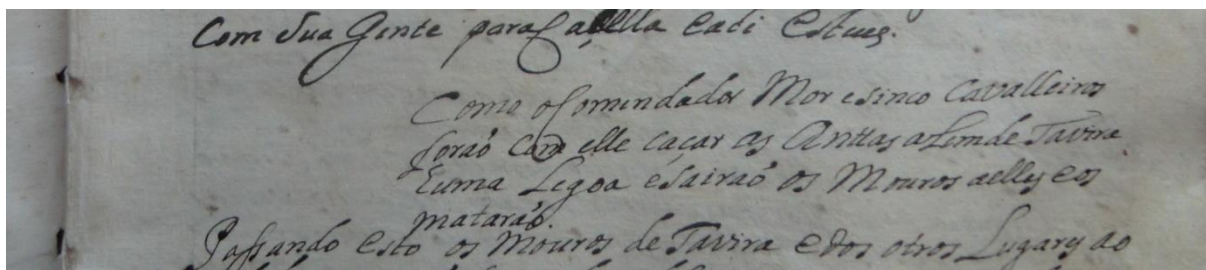 Com sua Gente para Caçella e ali esteve.
Como o Comendador Mor e sinco Cavalleiros
foraõ com elle caçar as Anttas alem de Tavira
huma Legoa e sairaõ os Mouros a elles e os
mataraõ.
Passando esto os Mouros de Tavira e dos otros Lugares do